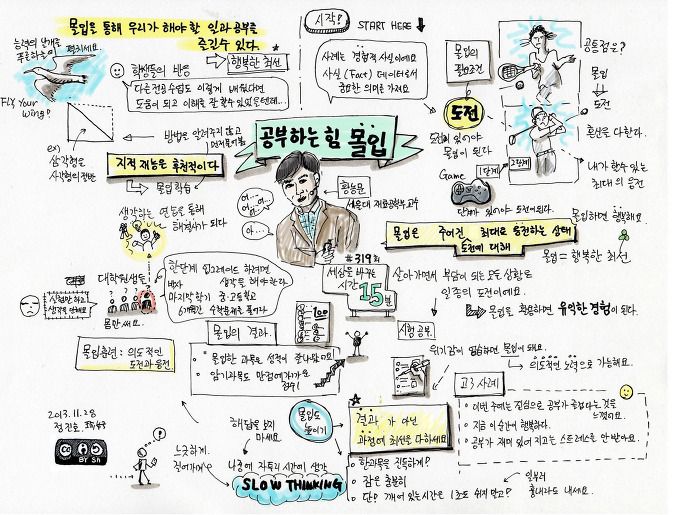 몰입을 통해 우리가 해야 할 일과 공부를
즐길수 있다.
시작?
START HERE
능력의 날개를
펼치세요.
Fly Your
Wing!
학생들의 반응
행복한 최선
다른전공수업도 이렇게 배웠다면
도움이 되고 이해를 잘 할수 있었을텐데...
사례는 경험적 사실이에요
사실 (Fact) 데이터로서
중요한 의미를 가져요
몰입의
필요조건
공통점은?
몰입
도전
혼신을 다한다.
내가 할수 있는
최대의 응전
도전
도전이 있어야
몰입이 된다
Game
1단계
2단계
단계가 있어야 도전이된다.
ex)
삼각형은
사각형의 절반
방법을 알려주지 않고
지적 재능은 후천적이다
몰입 학습
생각하는 연습을 통해
해결사가 되다
공부하는 힘 몰입
아...
황농문
서울대 재료공학부교수
몰입하면 행복해요
몰입은 주어진 도전에 대해 최대로 응전하는 상태
몰입 = 행복한 최선
#319회
세상을 바꾸는
시간 15분
살아가면서 부담이 되는 모든 상황도
일종의 도전이에요.
몰입을 활용하면 유익한 경험이 된다.
대학원생들은
실험만 하고
생각을 안해요
몸만 써요.
한단계 업그레이드 하려면
생각을 해야한다.
박사
마지막학기 중·고등학교
6개월간 수학문제를 풀게하다
몰입의 결과.
100
몰입한 과목은 성적이 잘나왔어요
암기과목도 만점에가까운
점수!
몰입훈련 : 의도적인
도전과 응전
시험공부.
위기감이 엄습하면 몰입이 돼요.
의도적인 노력으로 가능해요.
고3 사례
이번 주에는 진심으로 공부가 즐겁다는 것을
느꼈어요.
지금 이 순간이 행복하다.
공부가 재미 있어 지고는 스트레스를 안 받아요.
2013.11.28
정진호
CC
BY SA
느긋하게.
걸어가며
해답을 보지
마세요.
몰입도
높이기
결과 가 아닌
과정에 최선을 다하세요
나중에 자투리 시간에 생각
SLOW THINKING
한과목을 진득하게?
잠은 충분히
단? 깨어 있는시간은 1초도 쉬지 말고?
일부러
흉내라도 내세요.